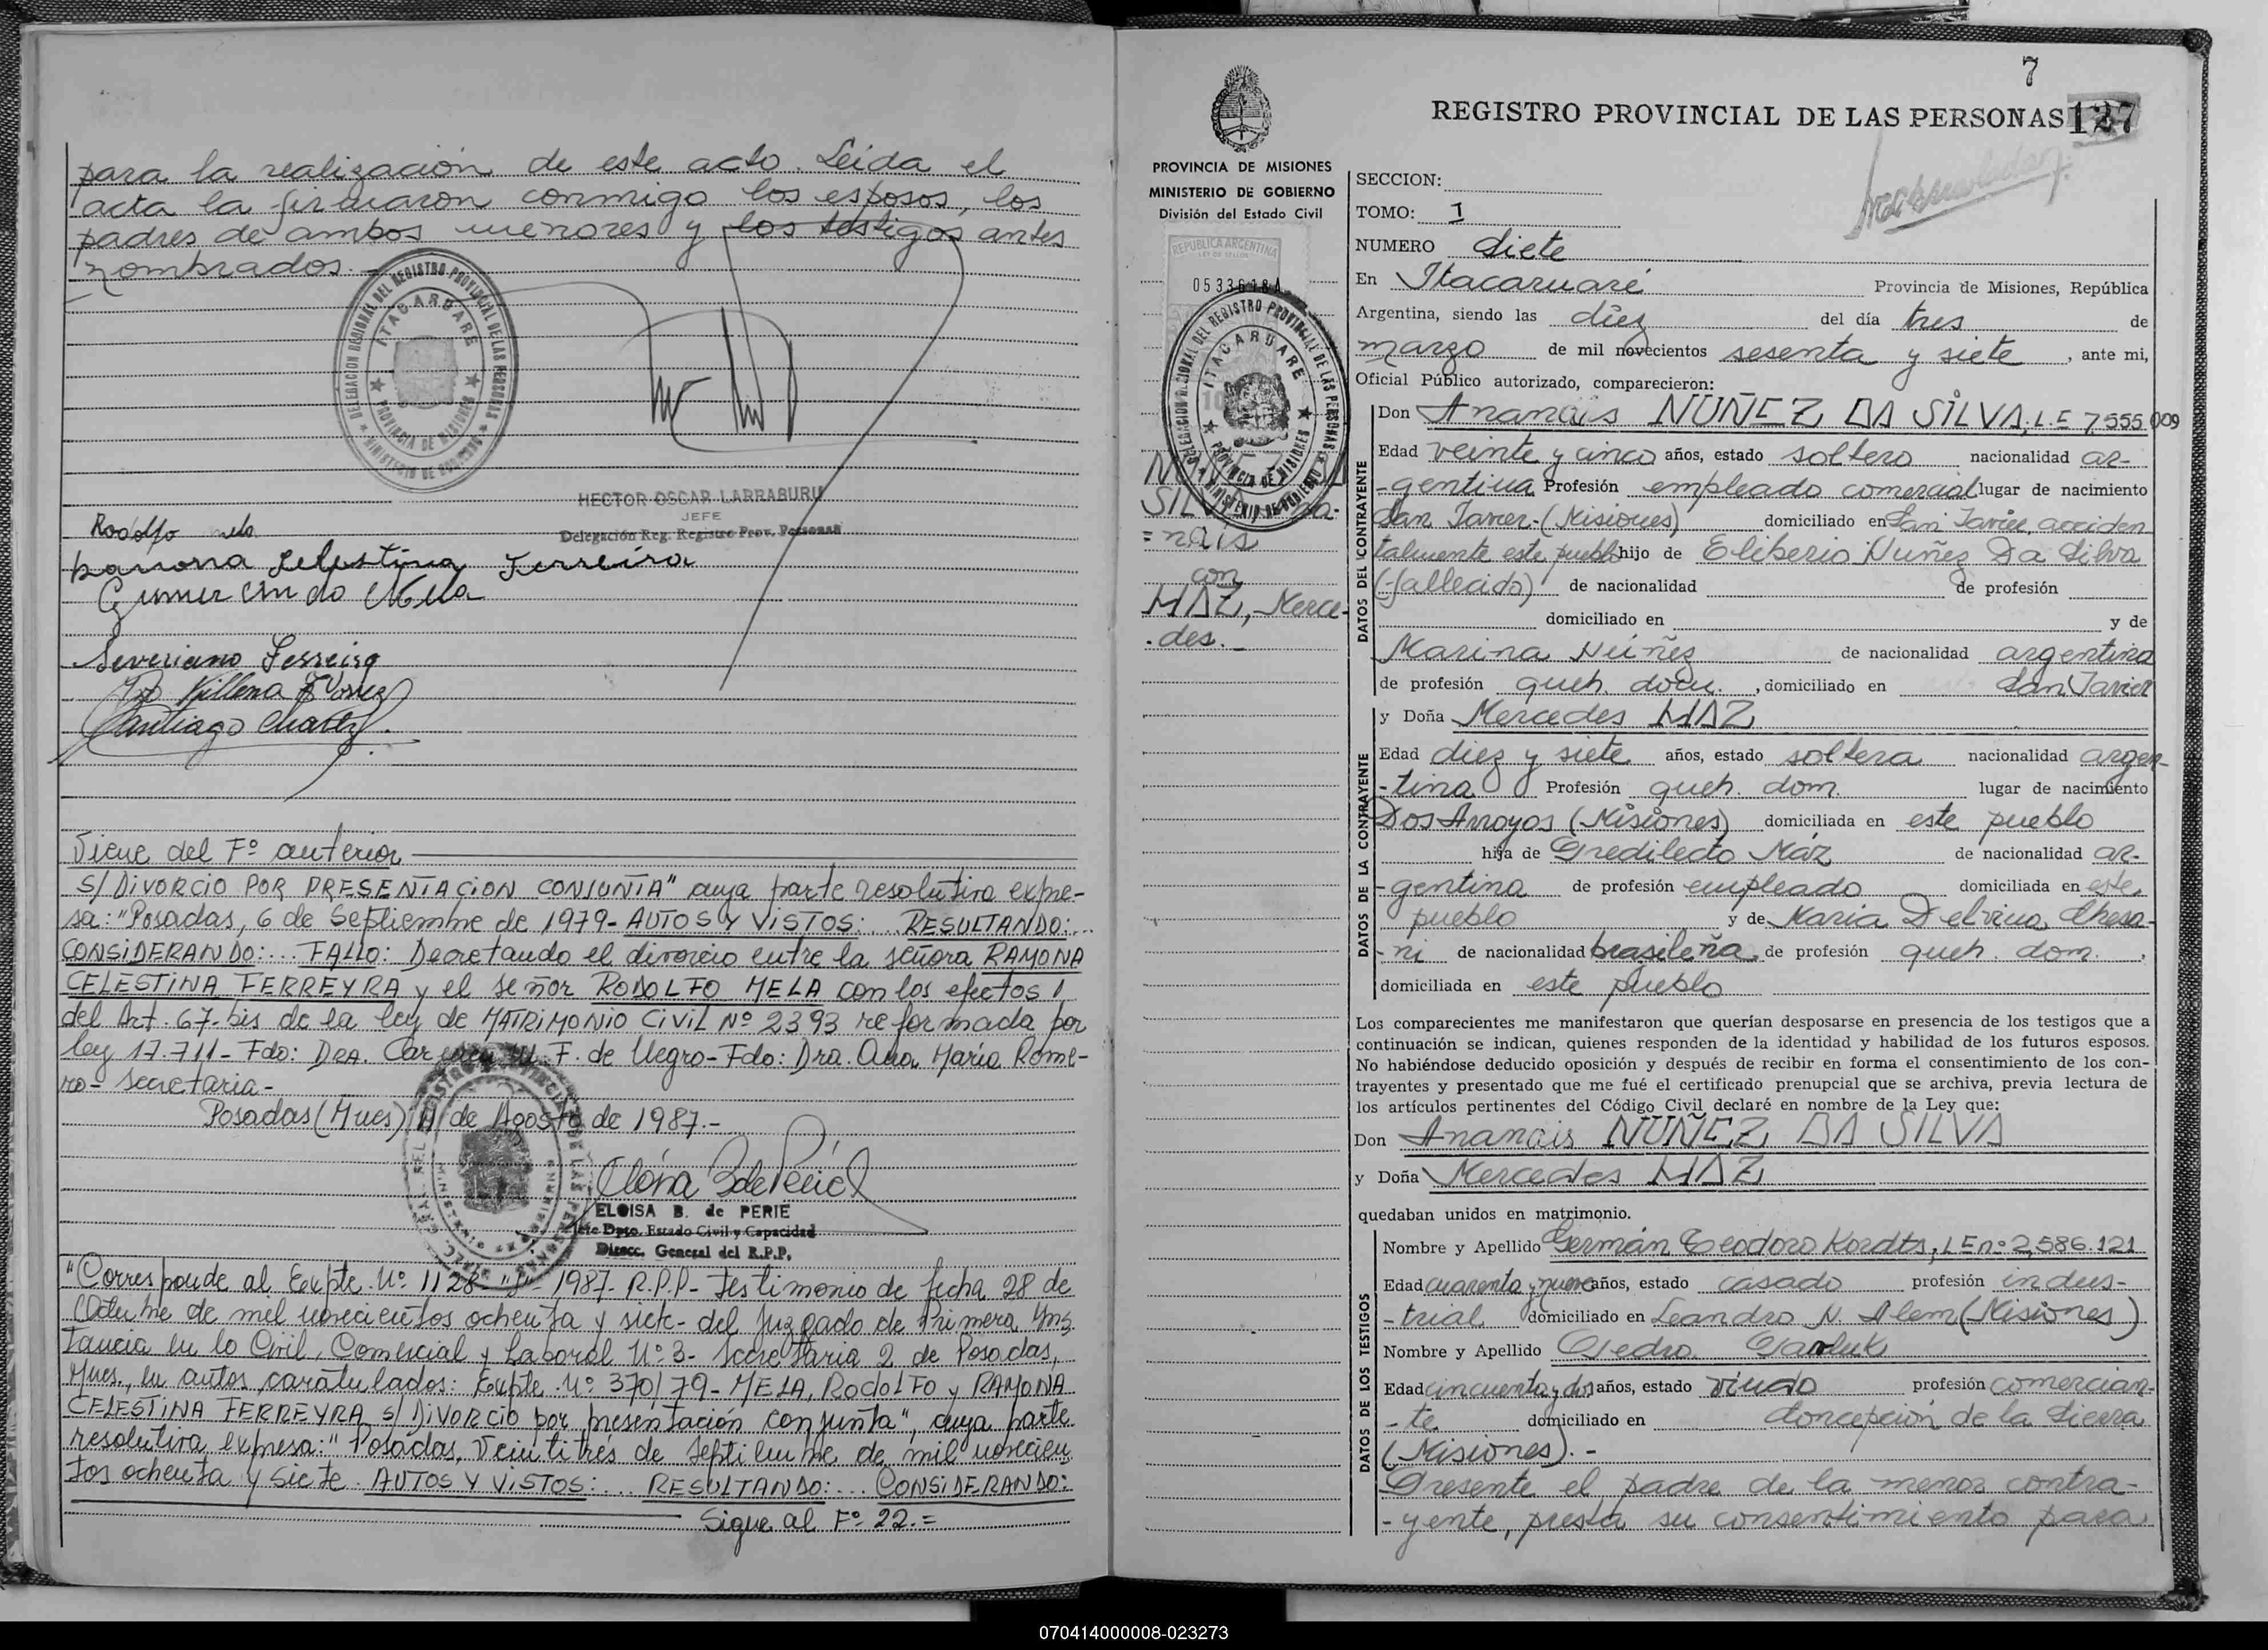 para la realización de este acto. Leida el
acta la firmaron conmigo los esposos, los
padres de ambos menores y los testigos antes
nombrados.-
DELEGACION REGIONAL DEL REGISTRO PROVINCIAL DE LAS PERSONAS
ITACARUARE
PROVINCIA DE MISIONES
MINISTERIO DE GOBIERNO
HECTOR OSCAR LARRABURU
JEFE
Delegación Reg. Registro Prov. Personas
Rodolfo Mela
Ramona Selestina Ferreira
Gumercindo Mela
Severiano Ferreira
Villena
Santiago Chavez
Viene del Fº anterior
S/ DIVORCIO POR PRESENTACION CONJUNTA" cuya parte resolutiva expre-
sa: "Posadas, 6 de Septiembre de 1979- AUTOS Y VISTOS:... RESULTANDO:...
CONSIDERANDO:... FALLO: Decretando el divorcio entre la señora RAMONA
CELESTINA FERREYRA y el señor RODOLFO MELA con los efectos
del Art. 67-bis de la ley de MATRIMONIO CIVIL Nº 2393 reformada por
ley 17.711- Fdo: DRA. Carmen M. F. de Negro- Fdo: Dra. Ana María Rome-
ro- Secretaria-
Posadas (Mnes) 11 de Agosto de 1987.-
ELOISA B. de PERIE
Jefe Dpto. Estado Civil y Capacidad
Direcc. General del R.P.P.
"Corresponde al Expte. Nº 1128- 1987- R.P.P- Testimonio de fecha 28 de
Octubre de mil novecientos ochenta y siete- del Juzgado de Primera Ins-
tancia en lo Civil, Comercial y Laboral Nº 3- Secretaria 2 de Posadas,
Mnes., en autos caratulados: Expte. Nº 370/79- MELA, RODOLFO y RAMONA
CELESTINA FERREYRA s/ DIVORCIO por presentación conjunta", cuya parte
resolutiva expresa: "Posadas, Veintitrés de Septiembre de mil novecien
tos ochenta y siete. AUTOS Y VISTOS:... RESULTANDO:... CONSIDERANDO:
Sigue al Fº 22.=
7
REGISTRO PROVINCIAL DE LAS PERSONAS 127
PROVINCIA DE MISIONES
MINISTERIO DE GOBIERNO
División del Estado Civil
REPUBLICA ARGENTINA
LEY DE SELLOS
0533618A
DELEGACION REGIONAL DEL REGISTRO PROVINCIAL DE LAS PERSONAS
ITACARUARE
PROVINCIA DE MISIONES
MINISTERIO DE GOBIERNO
NUÑEZ DA
SILVA, Ana-
=nais
con
MAZ, Merce-
.des.-
SECCION:
TOMO: I
NUMERO Siete
En Itacaruaré Provincia de Misiones, República
Argentina, siendo las diez del día tres de
marzo de mil novecientos sesenta y siete, ante mi,
Oficial Público autorizado, comparecieron:
DATOS DEL CONTRAYENTE
Don Ananais NUÑEZ DA SILVA, L.E 7.555.009
Edad veinte y cinco años, estado soltero nacionalidad ar-
-gentina Profesión empleado comercial lugar de nacimiento
San Javier-(Misiones) domiciliado en San Javier, acciden
talmente este pueblo hijo de Eliberio Nuñez Da Silva
(fallecido) de nacionalidad de profesión
domiciliado en y de
Marina Núñez de nacionalidad argentina
de profesión queh. dom., domiciliado en San Javier
DATOS DE LA CONTRAYENTE
y Doña Mercedes MAZ
Edad diez y siete años, estado soltera nacionalidad argen-
-tina Profesión queh. dom. lugar de nacimiento
Dos Arroyos (Misiones) domiciliada en este pueblo
hija de Predilecto Máz de nacionalidad ar-
-gentina de profesión empleado domiciliada en este
pueblo y de Maria Delvina Chesa-
-ni de nacionalidad brasileña, de profesión queh. dom.,
domiciliada en este pueblo
Los comparecientes me manifestaron que querían desposarse en presencia de los testigos que a
continuación se indican, quienes responden de la identidad y habilidad de los futuros esposos.
No habiéndose deducido oposición y después de recibir en forma el consentimiento de los con-
trayentes y presentado que me fué el certificado prenupcial que se archiva, previa lectura de
los artículos pertinentes del Código Civil declaré en nombre de la Ley que:
Don Ananais NUÑEZ DA SILVA
y Doña Mercedes MAZ
quedaban unidos en matrimonio.
DATOS DE LOS TESTIGOS
Nombre y Apellido Germán Teodoro Kordts, LE nº 2.586.121
Edad cuarenta y nueve años, estado casado profesión indus-
-trial domiciliado en Leandro N. Alem (Misiones)
Nombre y Apellido Pedro Pavluk
Edad cincuenta y dos años, estado viudo profesión comercian-
-te domiciliado en Concepción de la Sierra
(Misiones).-
Presente el padre de la menor contra-
-yente, presta su consentimiento para
070414000008-023273